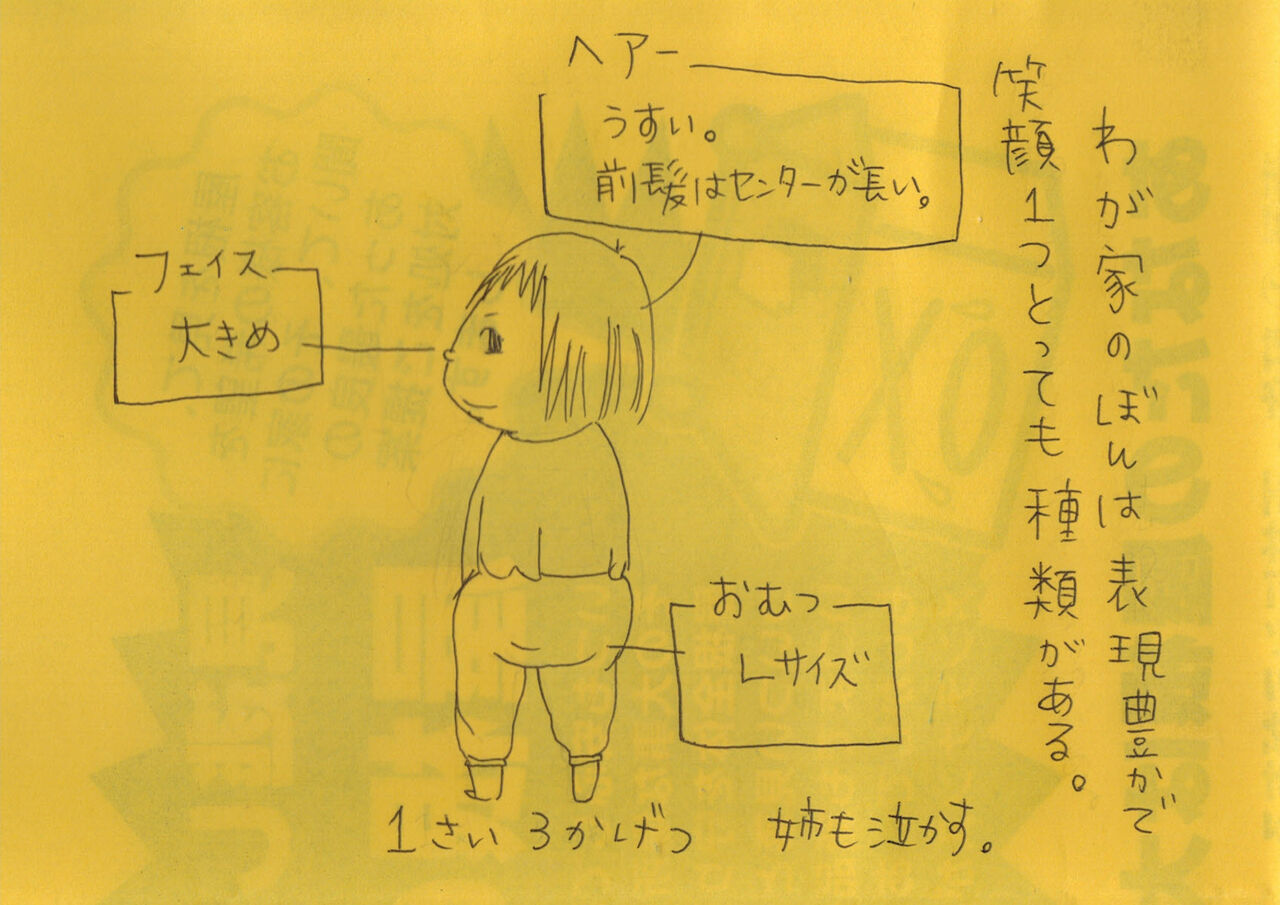 わが家のぼんは表現豊かで
笑顔1つとっても種類がある。
ヘアー
うすい。
前髪はセンターが長い。
フェイス
大きめ
おむつ
Lサイズ
1さい3かげつ
姉も泣かす。